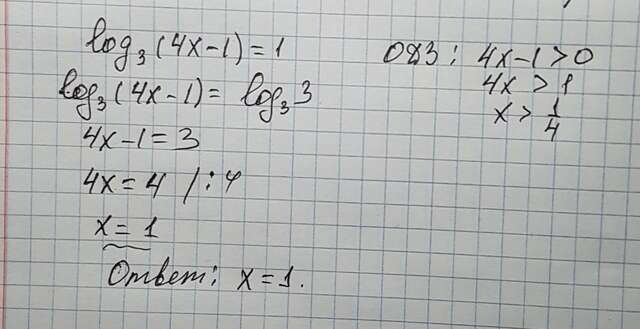 log₃(4x-1)=1
log₃(4x-1)= log₃3
4x-1=3
4x=4 /:4
x=1
Ответ: x=1.
ОДЗ: 4x-1>0
4x>1
x> 1/4